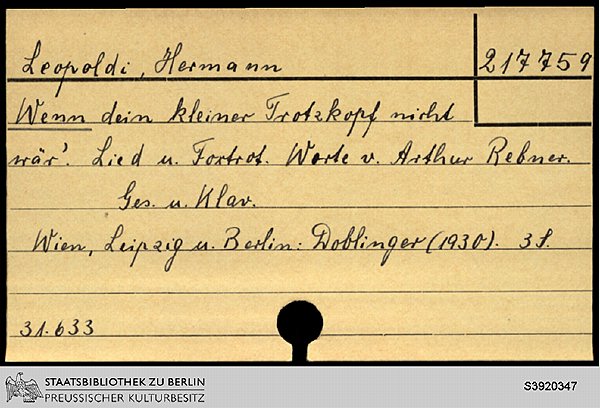 Leopoldi, Hermann 217759
Wenn dein kleiner Trotzkopf nicht
wär'. Lied u. Foxtrot. Worte v. Arthur Rebner.
Ges. u. Klav.
Wien, Leipzig u. Berlin: Doblinger (1930). 3 S.
31.633
STAATSBIBLIOTHEK ZU BERLIN
PREUSSISCHER KULTURBESITZ
S3920347